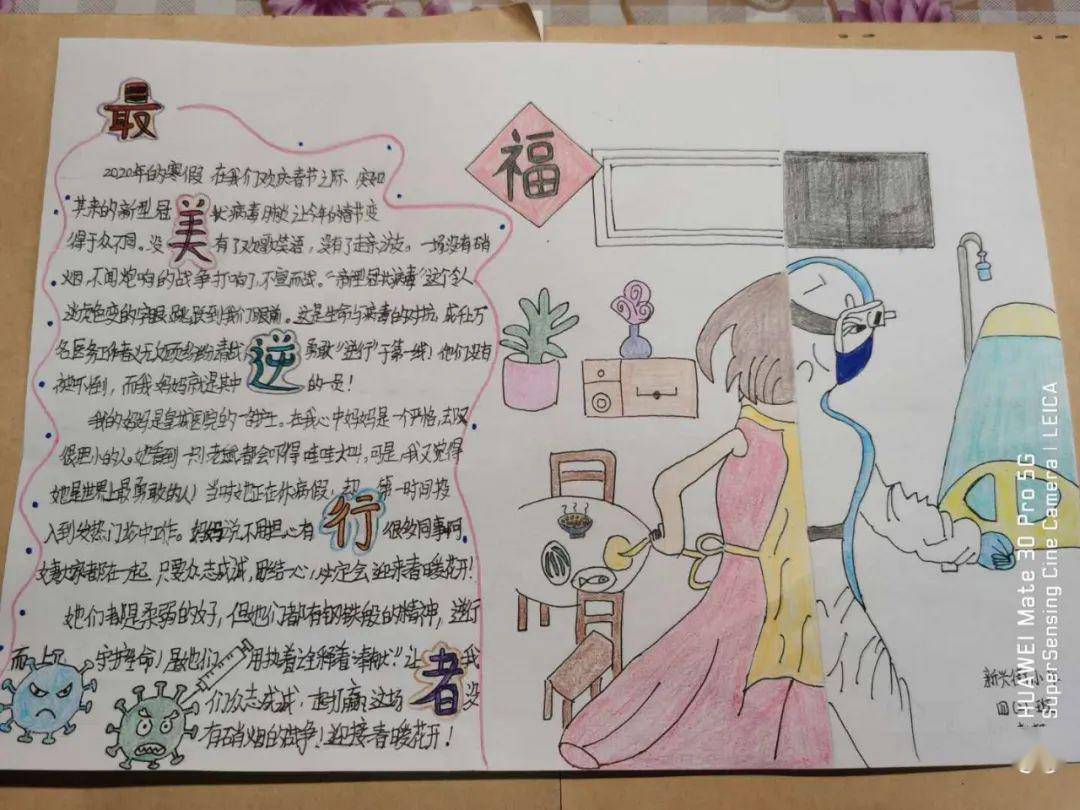 最
2020年的寒假 在我们欢庆春节之际 突如
其来的新型冠状病毒肺炎让今年的春节变
美
得于众不同。没有了欢歌笑语,没有了走亲访友。一场没有硝
烟,不闻炮响的战争打响了,不宣而战。“新型冠状病毒”这个令人
谈虎色变的字眼跳跃到我们眼前。这是生命与病毒的对抗,成千上万
名医务工作者 勇敢“逆行”于第一线!他们没有
逆
被吓倒,而我妈妈就是其中的一员!
我的妈妈是皇城医院的一名护士。在我心中妈妈是一个严格,去又
很胆小的人。她看到一只老鼠都会吓得哇哇大叫,可是,我又觉得
她是世界上最勇敢的人!当时她正在休病假,却第一时间投
行
入到发热门诊中工作。妈妈说不用担心有很多同事阿
姨大家都在一起,只要众志成城,团结一心,必定会迎来春暖花开!
她们都是柔弱的女子,但她们都有钢铁般的精神,逆行
而上 守护生命!是她们用执着诠释着 让我
者
们众志成城,一起打赢这场没
有硝烟的战争!迎接春暖花开!
福
HUAWEI Mate 30 Pro 5G
SuperSensing Cine Camera | LEICA